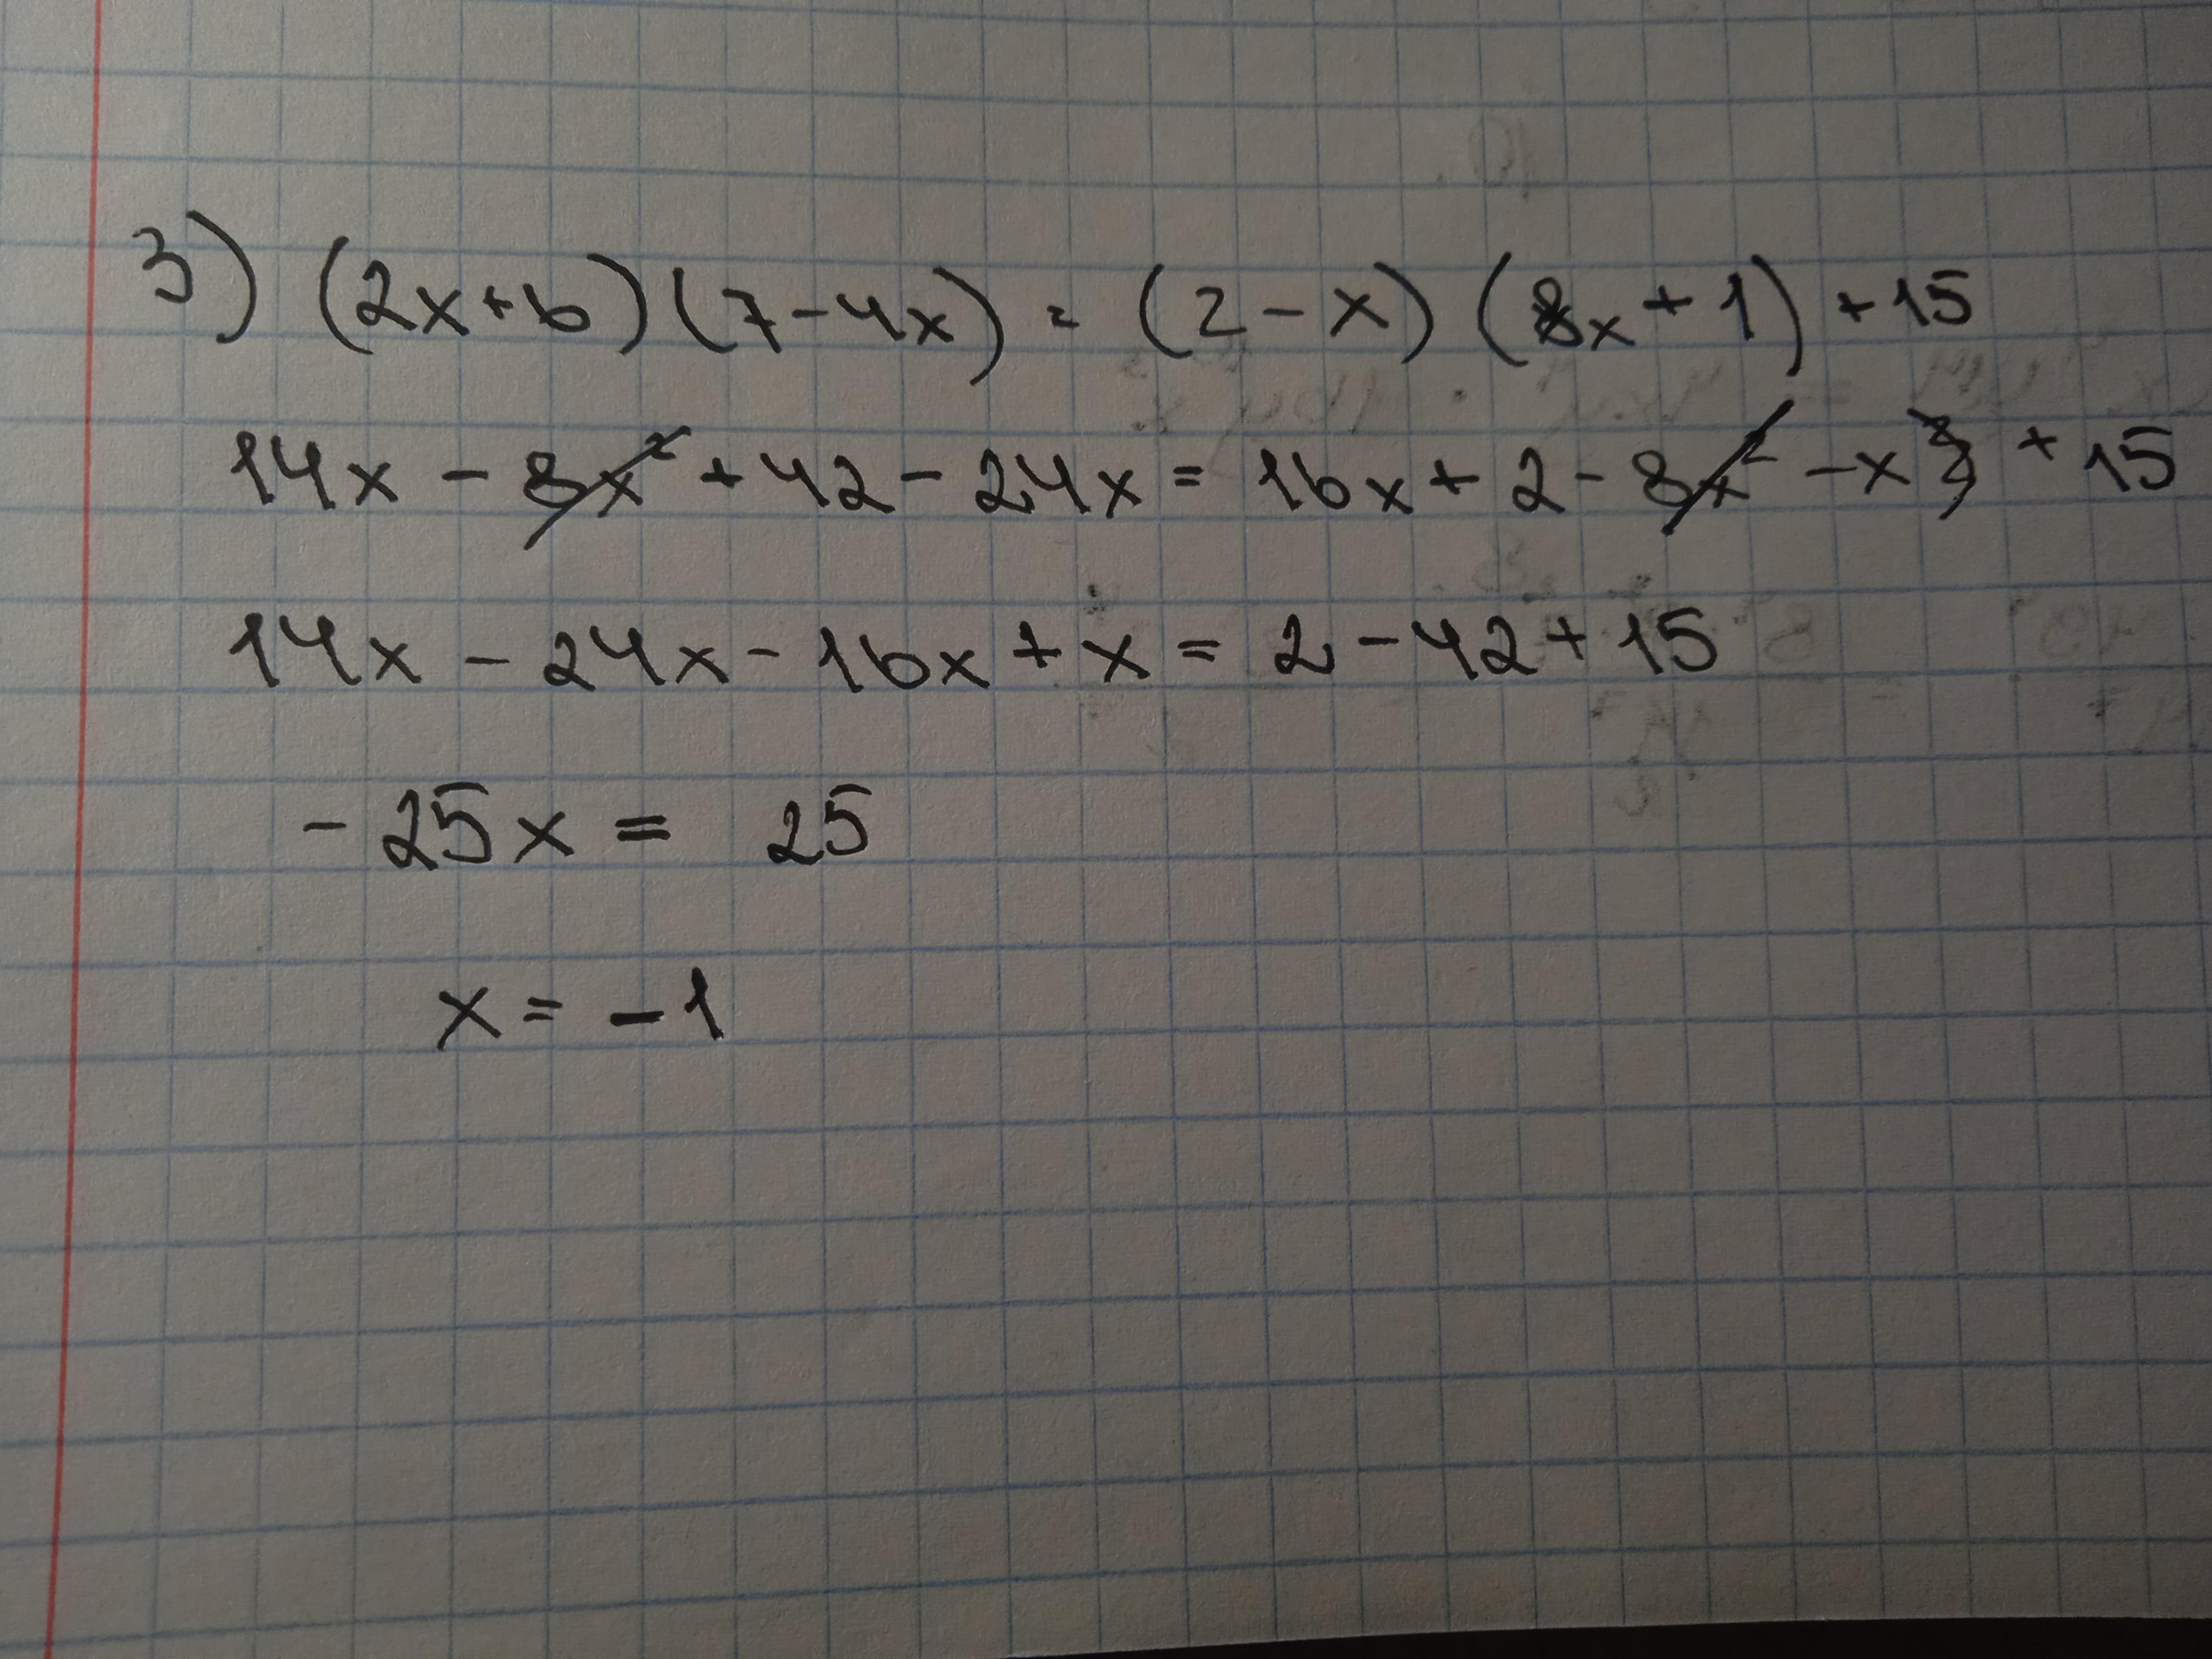 3) (2x+6)(7-4x) = (2-x)(8x+1)+15
14x - 8x² + 42 - 24x = 16x + 2 - 8x² - x + 15
14x - 24x - 16x + x = 2 - 42 + 15
-25x = 25
x = -1